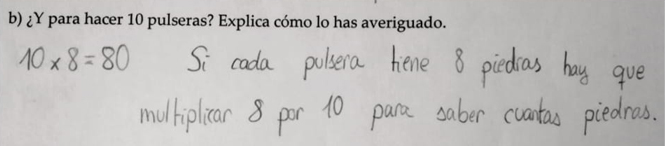 b) ¿Y para hacer 10 pulseras? Explica cómo lo has averiguado.
10 x 8 = 80 Si cada pulsera tiene 8 piedras hay que
multiplicar 8 por 10 para saber cuantas piedras.